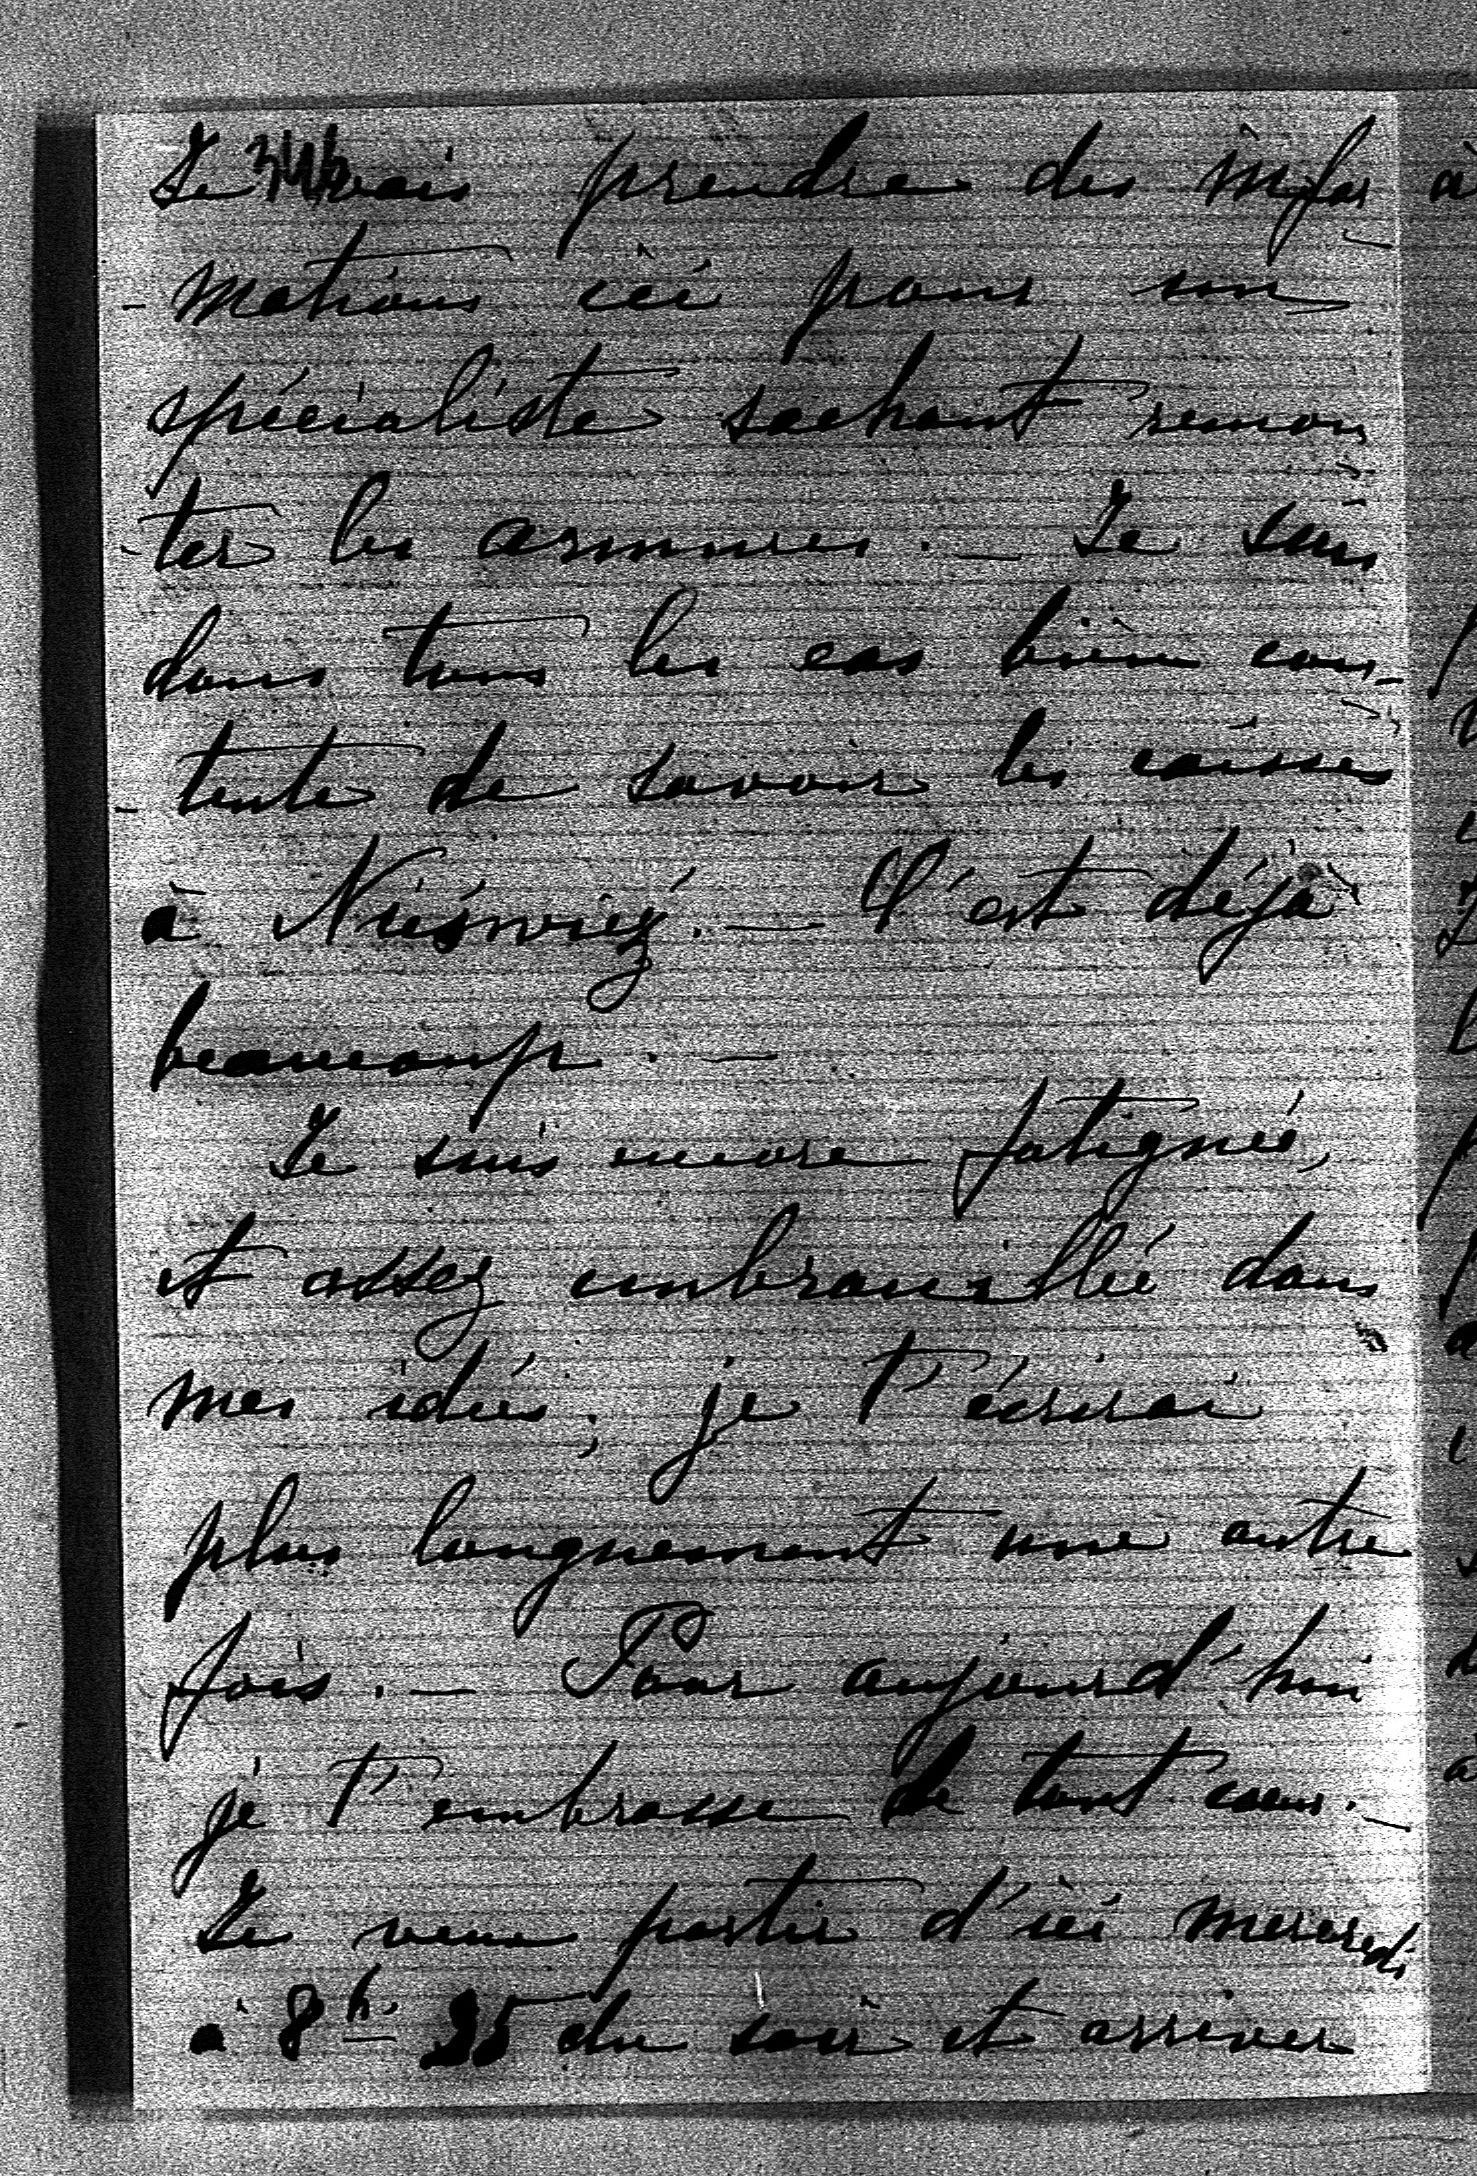 Je vais prendre des infor
- mations ici pour un
spécialiste sachant remon
- ter les armures. — Je suis
dans tous les cas bien con-
- tente de savoir les caisses
à Nieśwież. — C'est déjà
beaucoup. —
Je suis encore fatiguée,
et assez embrouillée dans
mes idées; je t'écrirai
plus longuement une autre
fois. — Pour aujourd'hui
je t'embrasse de tout cœur. —
Je veux partir d'ici mercredi
à 8h. 25 du soir et arriver